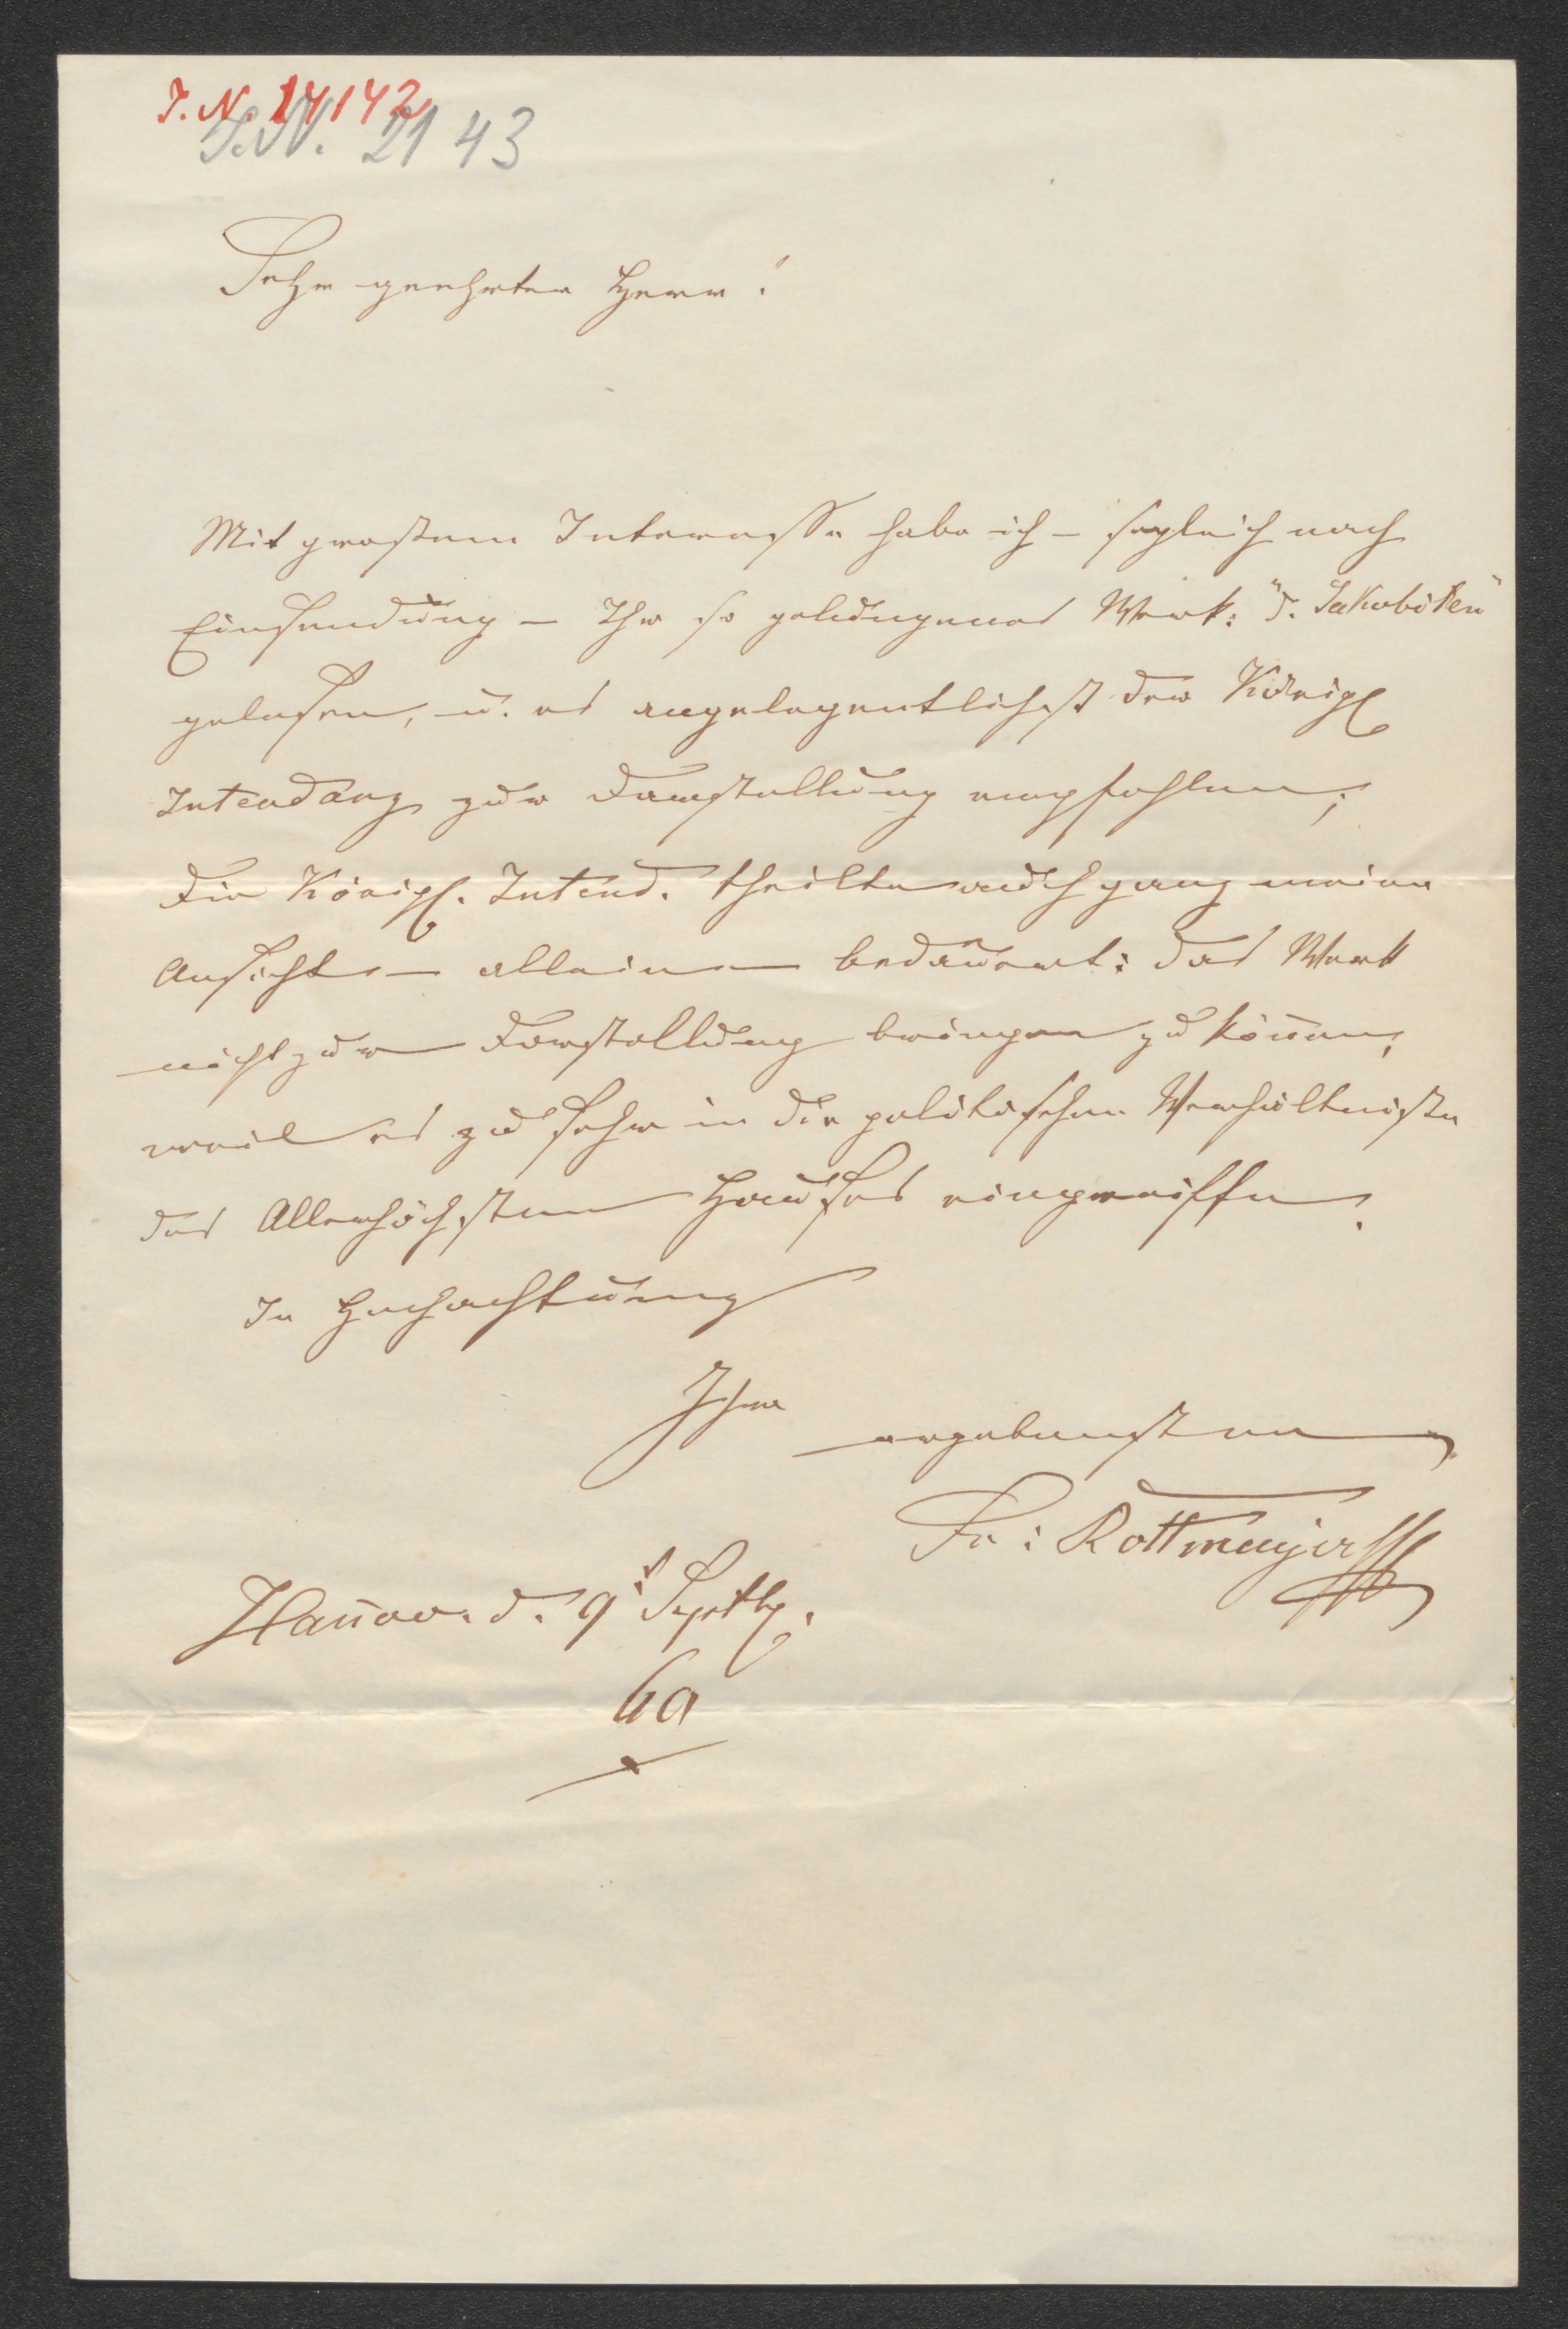 J. N. 14142
J.N. 2143
Sehr geehrter Herr!
Mit großem Interesse habe ich – sogleich nach
Einsendung – Ihr so gelungenes Werk: "d. Jakobiten"
gelesen, u. es angelegentlichst der Königl
Intendanz zur Darstellung empfohlen;
die Königl. Intend. theilte auch ganz meine
Ansicht – allein – bedauert: das Werk
nicht zur Darstellung bringen zu kön̄en,
weil es zu sehr in die politischen Verhältniße
des Allerhöchsten Hauses eingreiffe.
In Hochachtung
Ihr
ergebenster
Fr: Rottmayer
Han̄ov. d. 9t Septb.
60